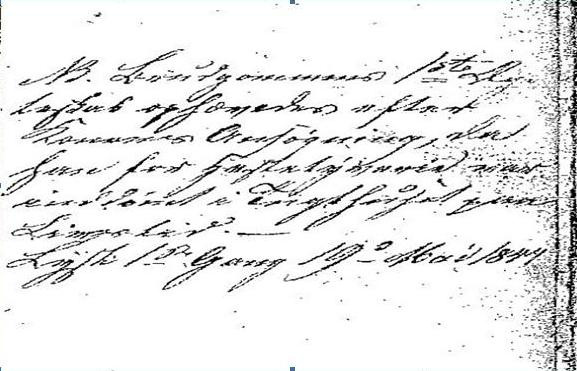 NB. Brudgommens 1ste Æg
teskab ophævedes efter
Konens Ansögning, da
han for Hestetyverie var
inddömt i Tugthuset paa
Livstid. —
Lyst 1ste Gang 19de Mai 1844